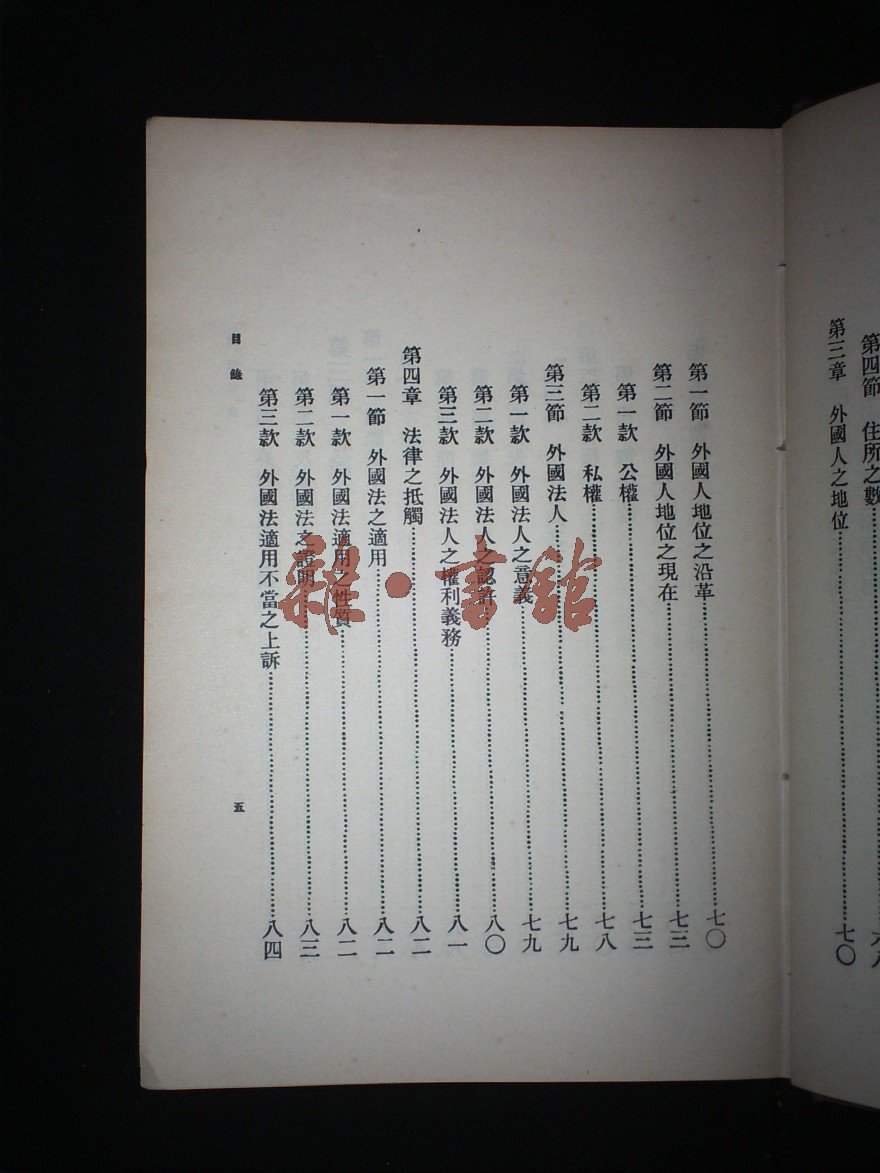 第四節 住所之數……六八
第三章 外國人之地位……七〇
第一節 外國人地位之沿革……七〇
第二節 外國人地位之現在……七三
第一款 公權……七三
第二款 私權……七八
第三節 外國法人……七九
第一款 外國法人之意義……七九
第二款 外國法人之認許……八〇
第三款 外國法人之權利義務……八一
第四章 法律之抵觸……八二
第一節 外國法之適用……八二
第一款 外國法適用之性質……八二
第二款 外國法之證明……八三
第三款 外國法適用不當之上訴……八四
目錄
五
雜·書館